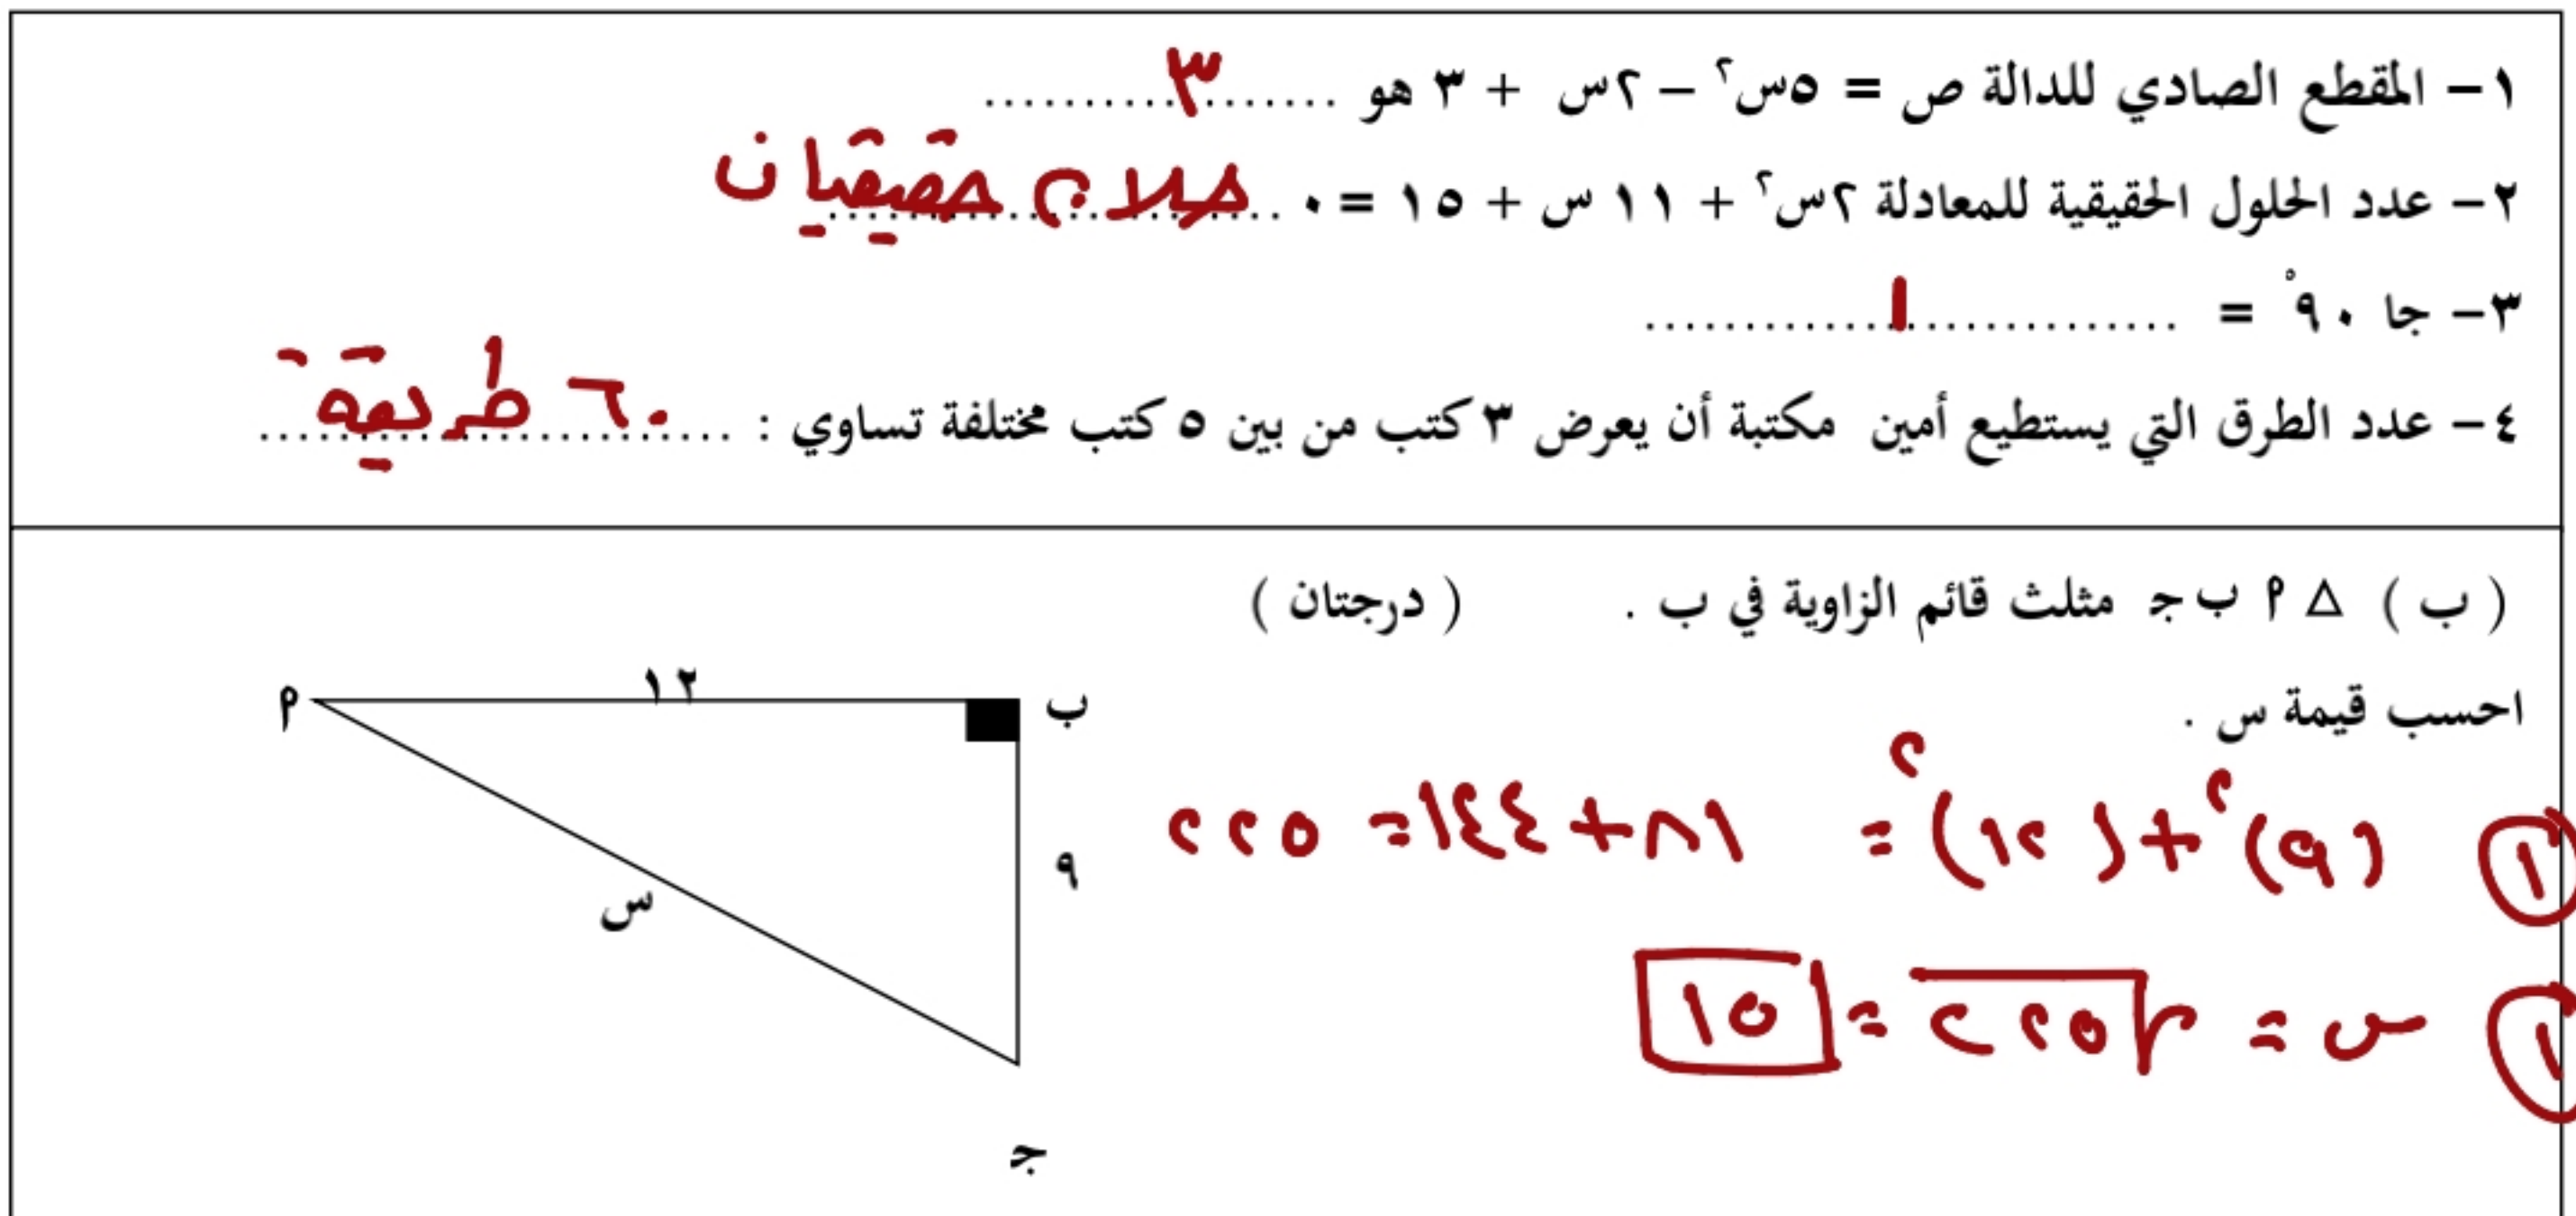 ١- المقطع الصادي للدالة ص = ٥س٢ - ٢س + ٣ هو .......٣.......
٢- عدد الحلول الحقيقية للمعادلة ٢س٢ + ١١ س + ١٥ = ٠ ....حلان حقيقيان....
٣- جا ٩٠° = ..........١..........
٤- عدد الطرق التي يستطيع أمين مكتبة أن يعرض ٣ كتب من بين ٥ كتب مختلفة تساوي : ....٦٠ طريقة....
( ب ) △ ٩ ب جـ مثلث قائم الزاوية في ب . ( درجتان )
احسب قيمة س .
١٢
ب
٩
س
٩
جـ
① (٩)٢ + (١٢)٢ = ٨١ + ١٤٤ = ٢٢٥
① س = √٢٢٥ = ١٥